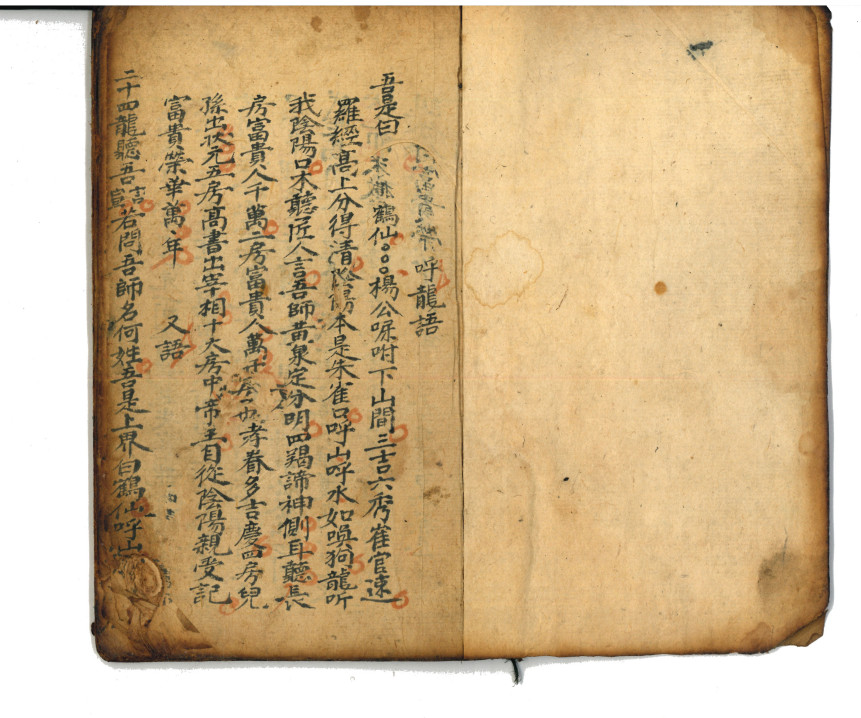 呼龍語
吾是白鶴仙楊公唳咐下山間三吉六秀崔官速
羅經高上分得清陰陽本是朱雀口呼山呼水如喚狗龍听
我陰陽口木聽匠人言吾師黄泉定分明四羯諦神側耳聽長
房富貴人千萬二房富貴人萬千房孝眷多吉慶四房兒
孫出状元五房高書出宰相十大房中帝王自從陰陽親受記
富貴榮華萬年 又語
二十四龍聽吾言若問吾師名何姓吾是上界白鶴仙呼山